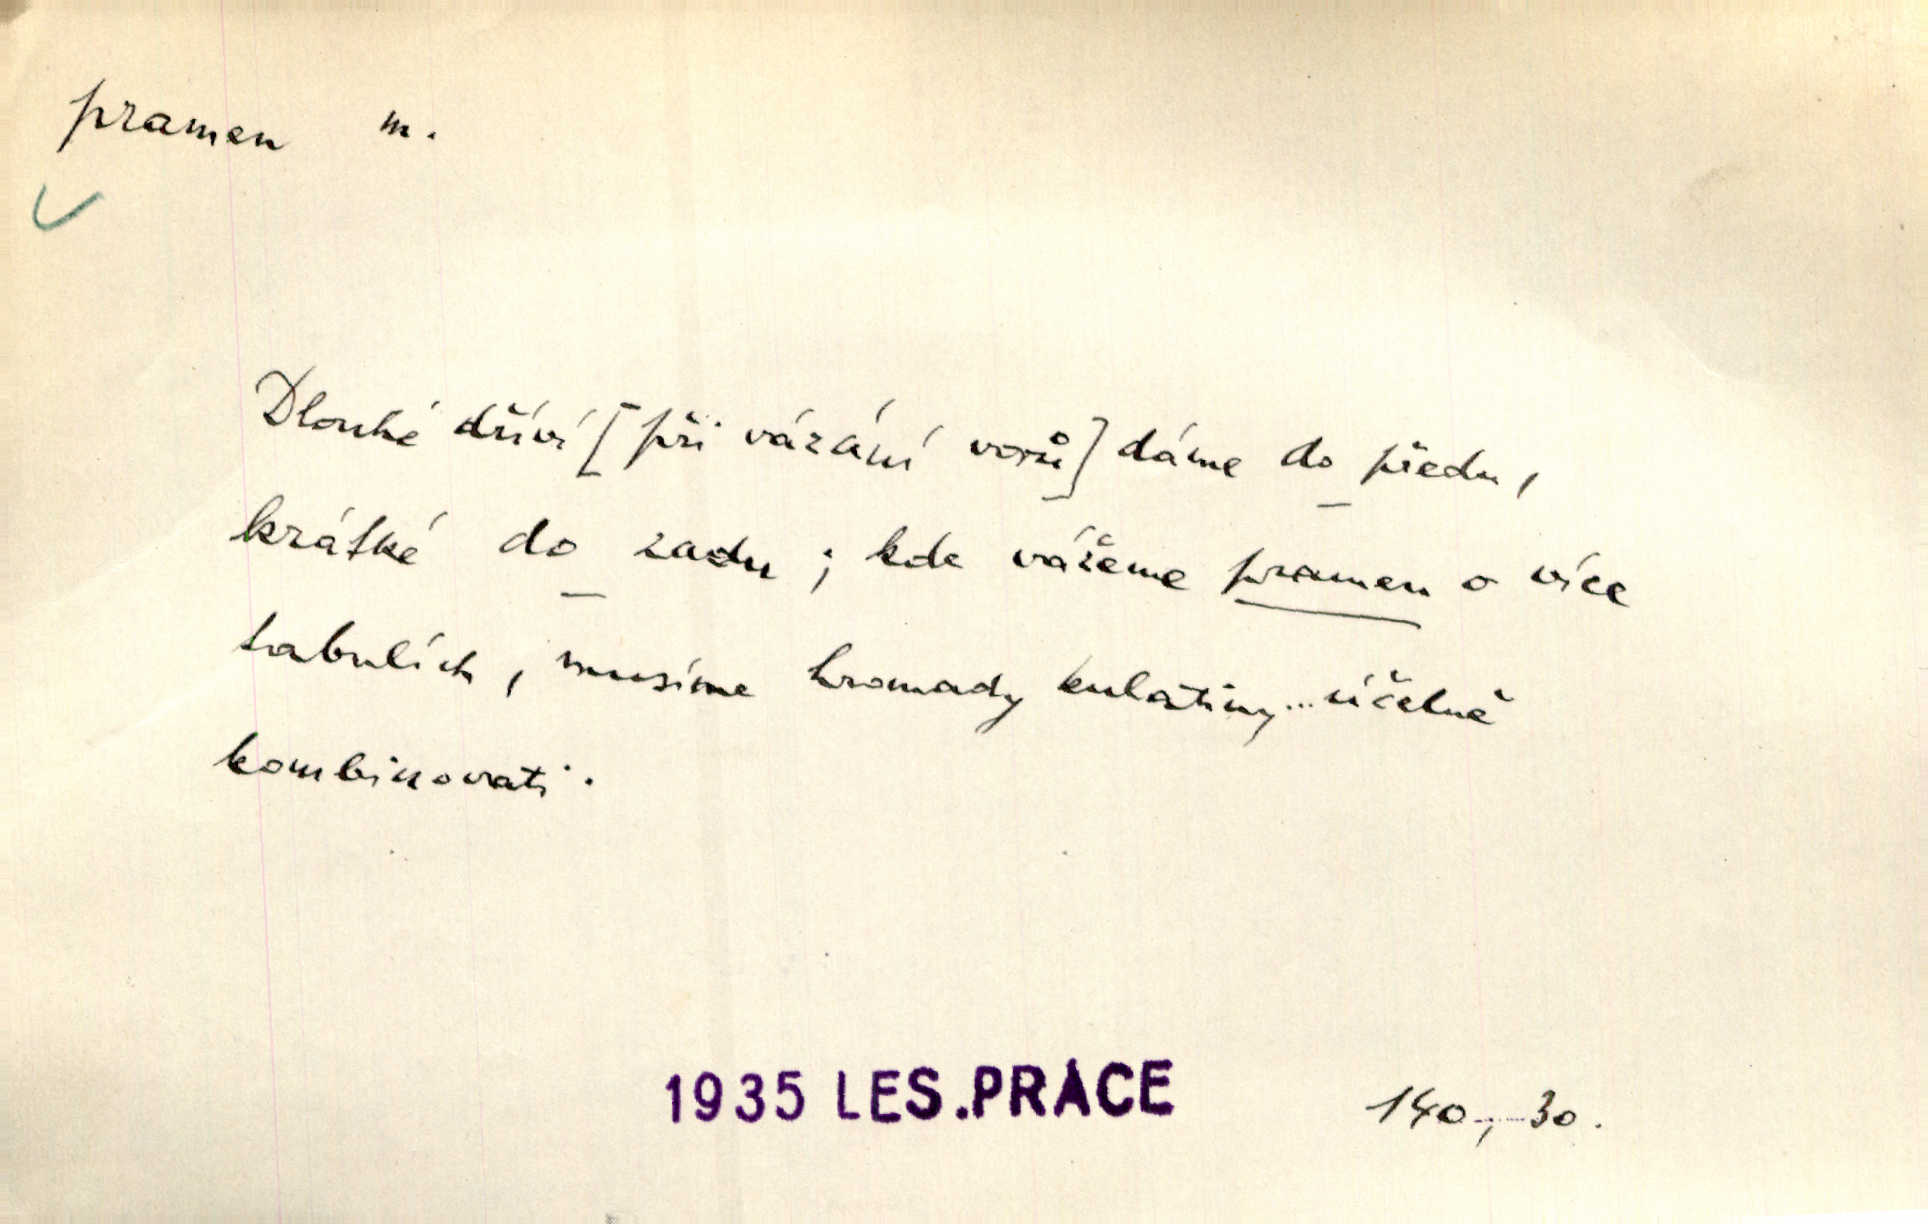 pramen m.
Dlouhé dříví [při vázání vorů] dáme do předu,
krátké do zadu; kde vážeme pramen o více
tabulích, musíme hromady kulatiny... účelně
kombinovati.
1935 LES.PRÁCE 140,-30.